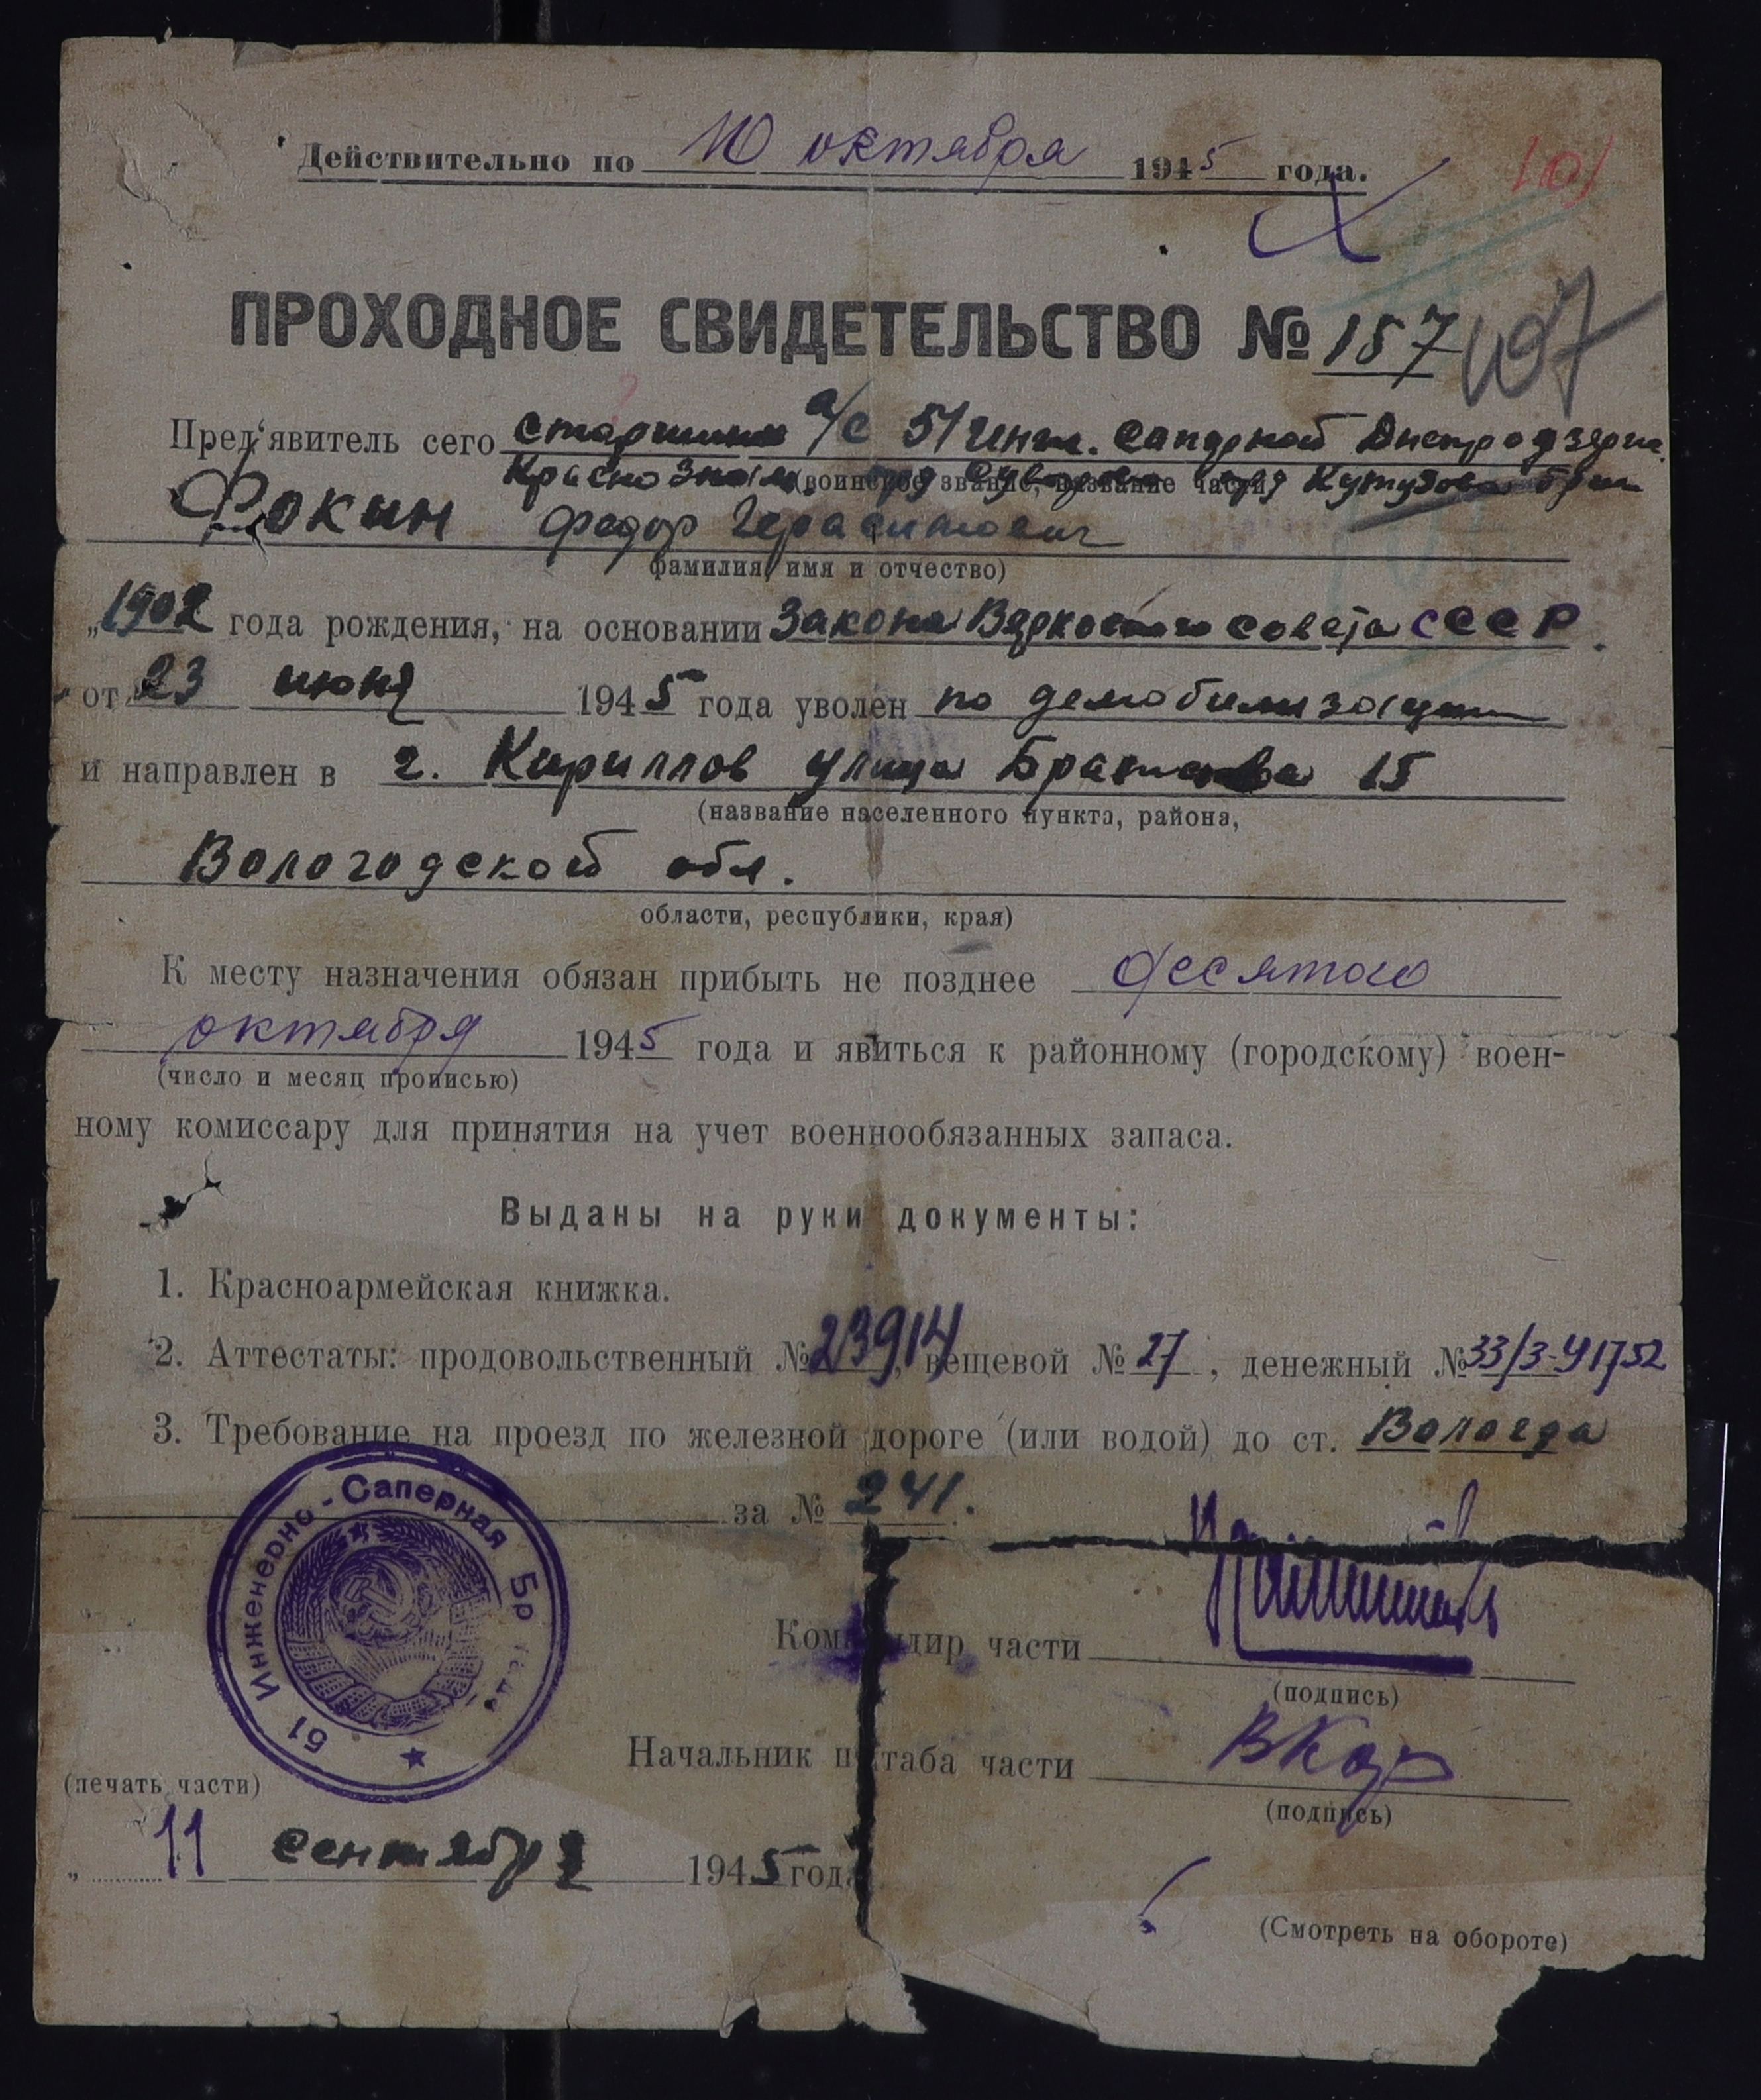 Действительно по 10 октября 1945 года.
101
ПРОХОДНОЕ СВИДЕТЕЛЬСТВО № 157
107
Пред'явитель сего старшина а/с 51 инж. саперной Днепродзерж.
Краснознам. орд. Суворова орд Кутузова бриг
(воинское звание, название части)
Фокин Федор Герасимович
фамилия, имя и отчество)
„1902 года рождения, на основании Закона Верховного совета СССР.
от 23 июня 1945 года уволен по демобилизации
и направлен в г. Кириллов улица 15
(название населенного пункта, района,
Вологодской обл.
области, республики, края)
К месту назначения обязан прибыть не позднее десятого
октября 1945 года и явиться к районному (городскому) воен-
(число и месяц прописью)
ному комиссару для принятия на учет военнообязанных запаса.
Выданы на руки документы:
1. Красноармейская книжка.
2. Аттестаты: продовольственный № 23914, вещевой № 27, денежный № 33/3-У1752
3. Требование на проезд по железной дороге (или водой) до ст. Вологда
за № 241.
51 Инженерно-Саперная Бр
Командир части
(подпись)
Начальник штаба части
(подпись)
(печать части)
„ 11 сентября 1945 года
(Смотреть на обороте)